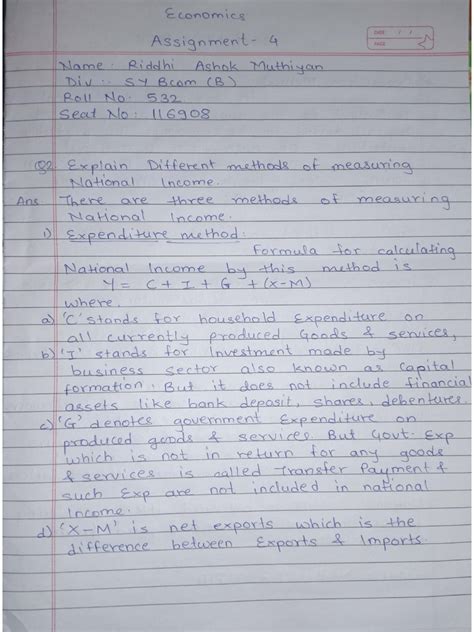 Economics
Assignment - 4
DATE / /
PAGE
Name : Riddhi Ashok Muthiyan
Div :- SY Bcom (B)
Roll No : 532
Seat No : 116908
Q2 Explain Different methods of measuring
National Income.
Ans There are three methods of measuring
National Income.
1) Expenditure method :
Formula for calculating
National Income by this method is
Y = C + I + G + (X-M)
where.
a) 'C' stands for household Expenditure on
all currently produced Goods & services,
b) 'I' stands for Investment made by
business sector also known as Capital
formation. But it does not include financial
assets like bank deposit, shares, debentures.
c) 'G' denotes government Expenditure on
produced goods & services But Govt. Exp
which is not in return for any goods
& services is called Transfer Payment &
such Exp are not included in national
Income.
d) 'X-M' is net exports which is the
difference between Exports & Imports.